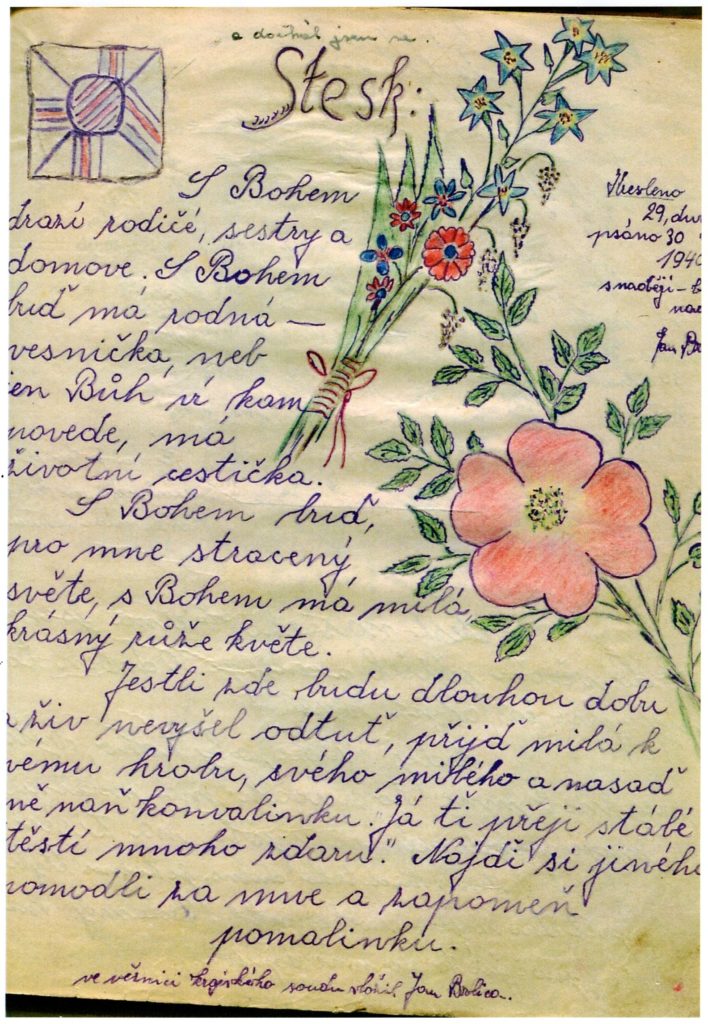 a dočkal jsem se.
Stesk:
S Bohem
drazí rodičé, sestry a
domove. S Bohem
buď má rodná —
vesnička, neb
jen Bůh ví kam
povede, má
životní cestička.
S Bohem buď,
pro mne stracený
světe, s Bohem má milá,
krásný růže květe.
Jestli zde budu dlouhou dobu
a živ nevyšel odtuť, přijď milá k
mému hrobu, svého milého a nasaď
mě naň konvalinku. Já ti přeji stálé
štěstí mnoho zdaru." Najdi si jiného
pomodli za mne a zapomeň
pomalinku.
ve věznici krajského soudu složil Jan
Kresleno
29,
psáno 30
1940
snaději –
Jan